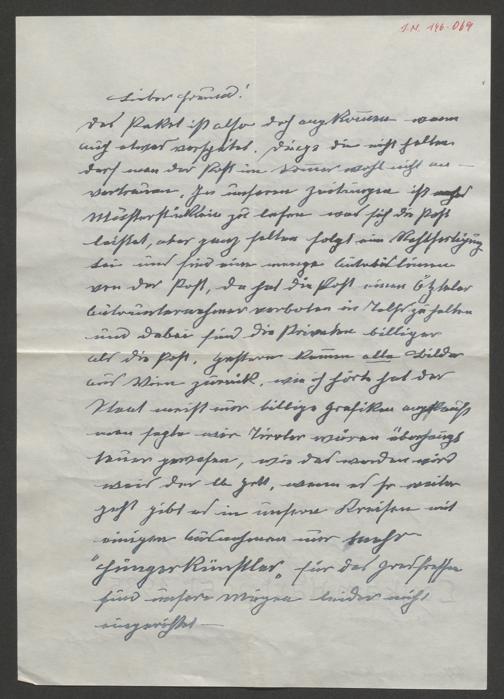 I.N. 196.069
Lieber Freund!
Das Paket ist also doch angekommen wenn
auch etwas verspätet. Dinge die nicht halten
darf man der Post im Sommer wohl nicht an-
vertrauen. In unseren Zeitungen ist
Musterstücklein zu lesen was sich die Post
leistet, aber ganz selten folgt eine Rechtfertigung
bei uns sind eine menge Autobuslinien
von der Post, da hat die Post einem Ötztaler
Autounternehmer verboten in Telfs zu halten
und dabei sind die Privaten billiger
als die Post. Gestern kamen alle Bilder
aus Wien zurück, wie ich hörte hat der
Staat meist nur billige Grafiken angekauft
man sagte mir Tiroler wären überhaupt
teuer gewesen, wie das werden wird
weis der lb Gott, wenn es so weiter
geht gibt es in unseren Kreisen mit
einigen Ausnahmen nur mehr
"Hungerkünstler" für das Grasfressen
sind unsere Mägen leider nicht
eingerichtet —